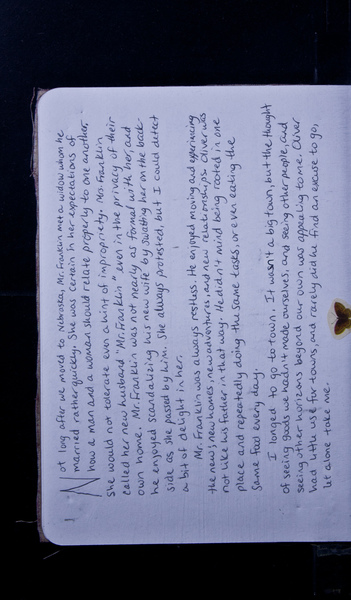 Not long after we moved to Nebraska, Mr. Franklin met a widow whom he
married rather quickly. She was certain in her expectations of
how a man and a woman should relate properly to one another,
she would not tolerate even a hint of impropriety. Mrs. Franklin
called her new husband "Mr. Franklin" even in the privacy of their
own home. Mr. Franklin was not nearly as formal with her, and
he enjoyed scandalizing his new wife by swatting her on the back-
side as she passed by him. She always protested, but I could detect
a bit of delight in her.
Mr. Franklin was always restless. He enjoyed moving and experiencing
the new; new homes, new adventures, and new relationships. Oliver was
not like his father in that way. He didn't mind being rooted in one
place and repeatedly doing the same tasks, or even eating the
same food every day.
I longed to go to town. It wasn't a big town, but the thought
of seeing goods we hadn't made ourselves, and seeing other people, and
seeing other horizons beyond our own was appealing to me. Oliver
had little use for towns, and rarely did he find an excuse to go,
let alone take me.
1